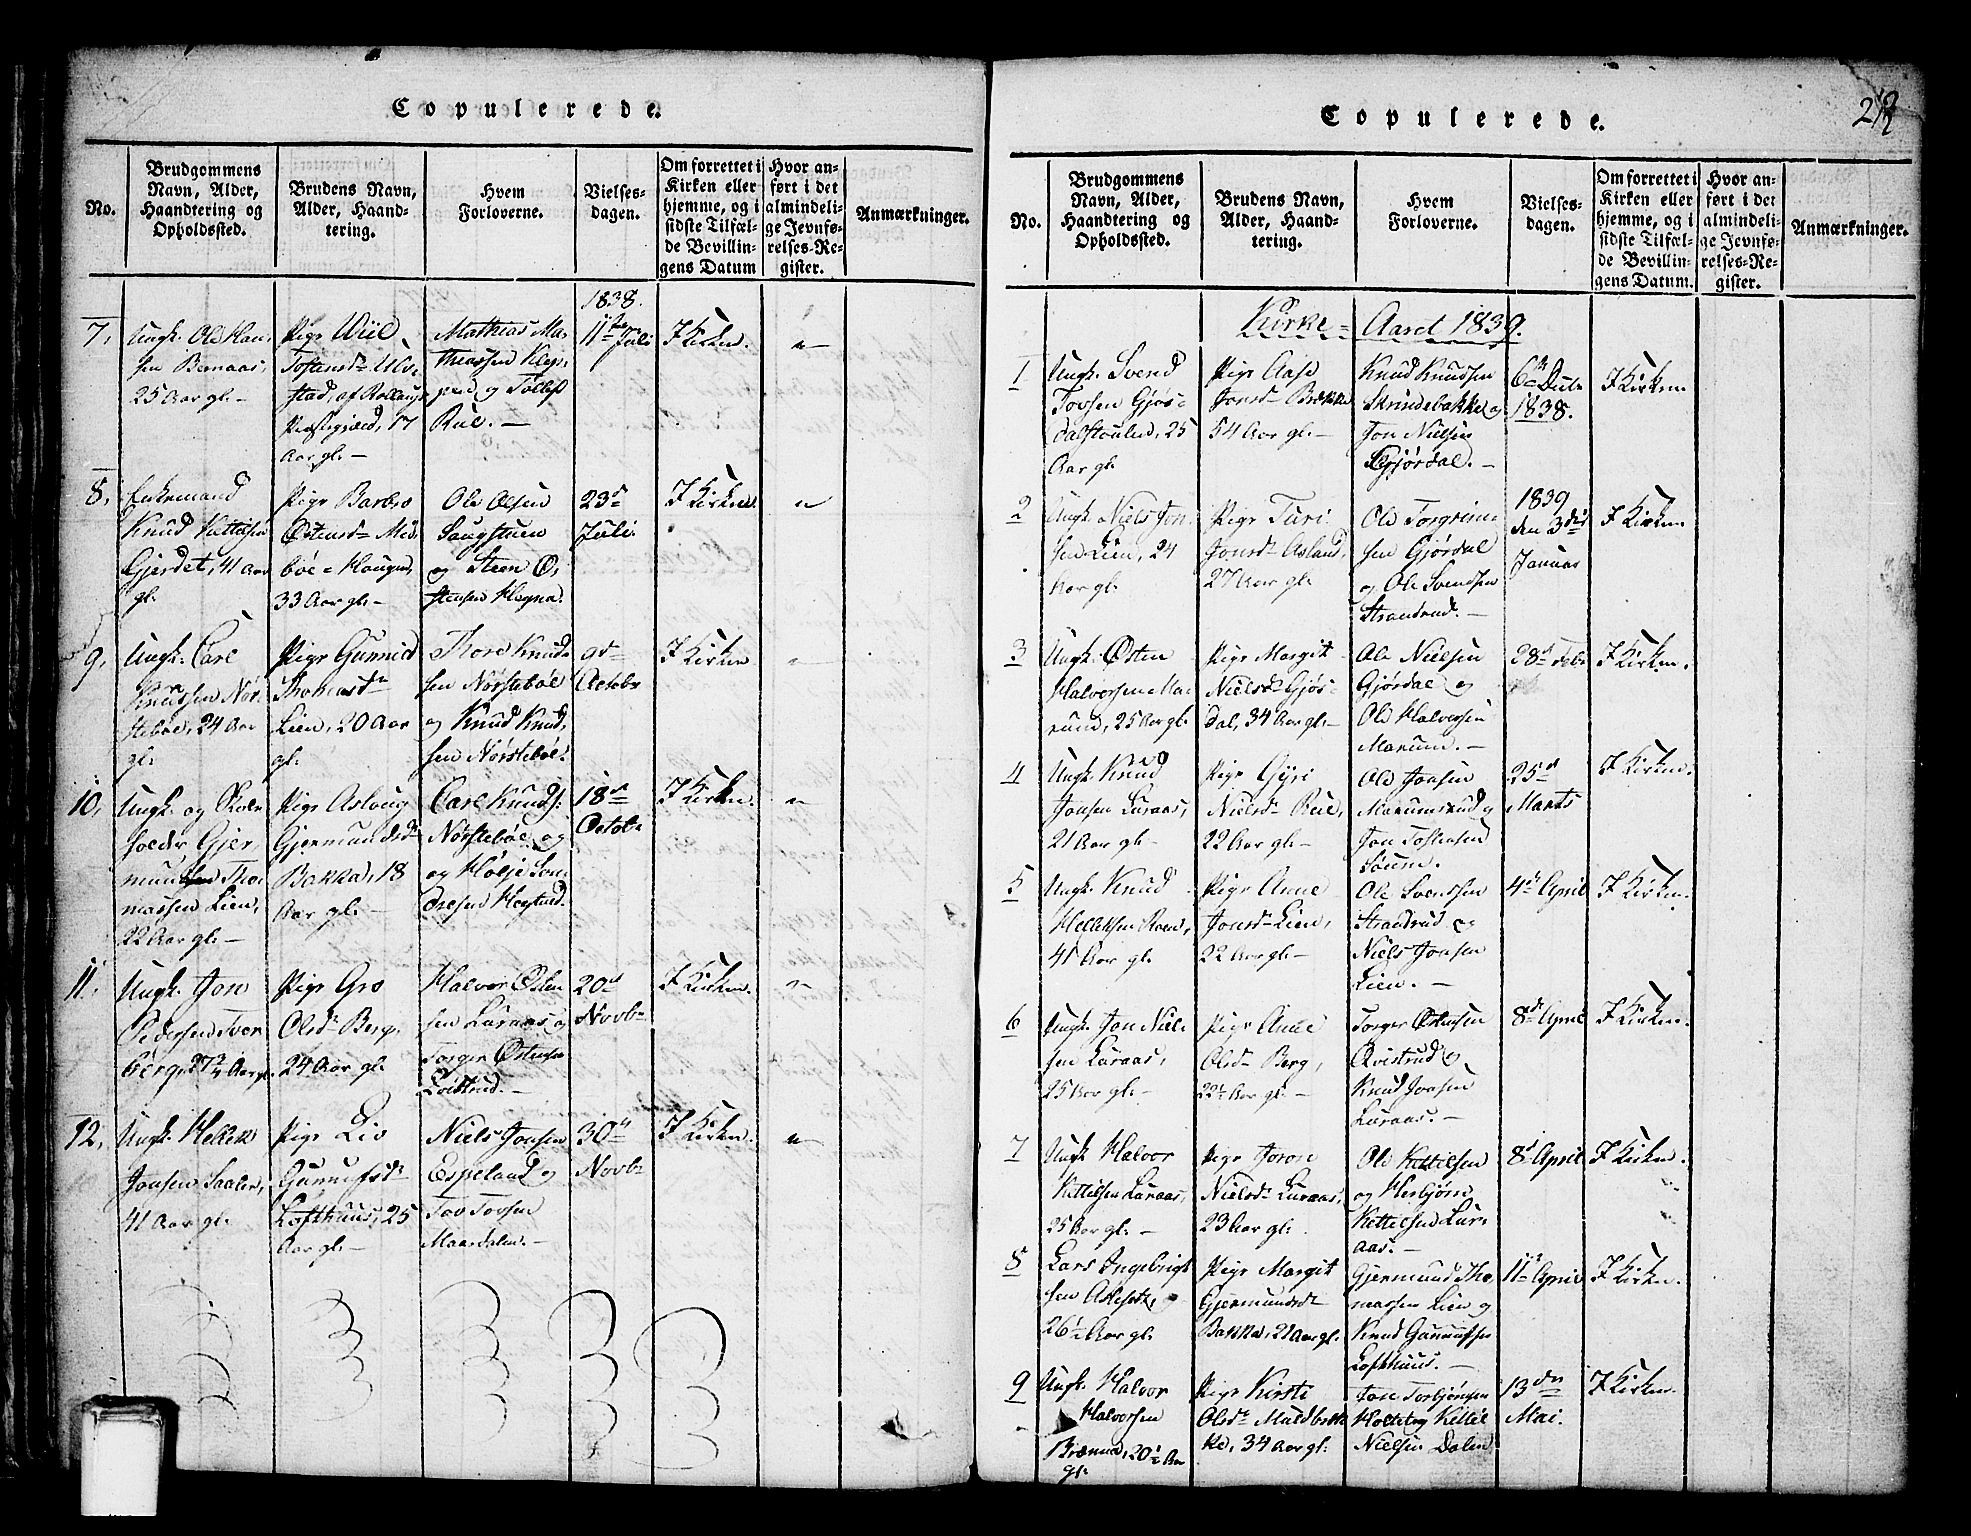 Copulerede.
No.
Brudgommens
Navn, Alder,
Haandtering og
Opholdssted.
Brudens Navn,
Alder, Haand-
tering.
Hvem
Forloverne.
Vielses-
dagen.
Om forrettet i
Kirken eller
hjemme, og i
sidste Tilfæl-
de Bevillin-
gens Datum
Hvor an-
ført i det
almindeli-
ge Jevnfø-
relses-Re-
gister.
Anmærkninger.
1838.
7.
Ungk. Ole Han-
sen Bernaas,
25 Aar gl.
Pige
af Rollaugs
Præstegjæld, 17
Aar gl.
Mathias Ma-
thiassen Klep-
pen og Tollef
Rue.
11te Juli
I Kirken.
8.
Enkemand
Knud Kittilsen
Gjerdet, 41 Aar
gl.
Pige Barbro
Østensdr
33 Aar gl.
Ole Olsen
og Steen Ø-
stensen Hegna.
23de
Juli.
I Kirken.
9.
Ungk. Carl
Knudsen Nør-
stebøe, 24 Aar
gl.
Pige Gunnild
Thomasdr
Lien, 20 Aar
gl.
Thore Knud-
sen Nørstebøe
og Knud Knud-
sen Nørstebøe.
9de
Octobr
I Kirken
10.
Ungk. og Skole-
holder Gjer-
mund Tho-
massen Lien,
22 Aar gl.
Pige Aslaug
Gjermundsdr
Bakka, 18
Aar gl.
Carl Knuds.
Nørstebøe og
og Hølje Son-
dresen
18de
Octobr
I Kirken.
11.
Ungk. Jon
Pedersen Tver-
berg, 27½ Aar gl.
Pige Gro
Olsdr Berg,
24 Aar gl.
Halvor Østen-
sen Luraas og
Torger Østensen
Qvistrud.
20de
Novbr
I Kirken.
12.
Ungk. Hellek
Jonsen Saaler,
41 Aar gl.
Pige Liv
Gunnufsdr
Lofthuus, 25
Aar gl.
Niels Jonsen
Espeland og
Tov Tovsen
Maardalen.
30te
Novbr
I Kirken.
Copulerede.
212
No.
Brudgommens
Navn, Alder,
Haandtering og
Opholdssted.
Brudens Navn,
Alder, Haand-
tering.
Hvem
Forloverne.
Vielses-
dagen.
Om forrettet i
Kirken eller
hjemme, og i
sidste Tilfæl-
de Bevillin-
gens Datum.
Hvor an-
ført i det
almindeli-
ge Jevnfø-
relses-Re-
gister.
Anmærkninger.
Kirke-Aaret 1839.
1
Ungk. Svend
Tovsen Gjøs-
dalstoulen, 25
Aar gl.
Pige Aase
Jonsdr Brekke
54 Aar gl.
Knud Knudsen
Skrindebakke og
Jon Nielsen
Gjøsdal.
6te Decbr
1838.
I Kirken.
2
Ungk. Niels Jon-
sen Lien, 24
Aar gl.
Pige Turi
Jonsdr Asland,
27 Aar gl.
Ole Torgrim-
sen Gjøsdal
og Ole Svendsen
Strandrud.
1839
den 3die
Januar
I Kirken
3
Ungk. Østen
Halvorsen Ma-
rum, 25 Aar gl.
Pige Margit
Nielsdr Gjøs-
dal, 34 Aar gl.
Ole Nielsen
Gjøsdal og
Ole Halvorsen
Marum.
28de Febr
I Kirken.
4
Ungk. Knud
Jonsen Luraas,
21 Aar gl.
Pige Gyri
Nielsdr Rue,
22 Aar gl.
Ole Jonsen
Marumsrud og
Jon Tostensen
25de
Marts
I Kirken.
5
Ungk. Knud
Helleksen Roen,
41 Aar gl.
Pige Anne
Jonsdr Lien,
22 Aar gl.
Ole Svendsen
Strandrud og
Niels Jonsen
Lien.
4de April
I Kirken.
6
Ungk. Jon Niel-
sen Luraas,
25 Aar gl.
Pige Anne
Olsdr Berg,
22½ Aar gl.
Torger Østensen
Qvistrud og
Knud Jonsen
Luraas.
8de April
I Kirken.
7
Ungk. Halvor
Kittilsen Luraas,
25 Aar gl.
Pige Joron
Nielsdr Luraas,
23 Aar gl.
Ole Kittilsen
og Herbjørn
Kittilsen Lur-
aas.
8de April
I Kirken.
8
Lars Ingebrigt-
sen
26½ Aar gl.
Pige Margit
Gjermundsdr
Bakka, 21 Aar gl.
Gjermund Tho-
massen Lien og
Knud Gunnufsen
Lofthuus.
11te April
I Kirken.
9
Ungk. Halvor
Halvorsen
20½ Aar
gl.
Pige Kirsti
Olsdr Muldbek-
ke, 34 Aar gl.
Jon Torbjørnsen
Kittil
Nielsen Dalen
13den
Mai.
I Kirken.